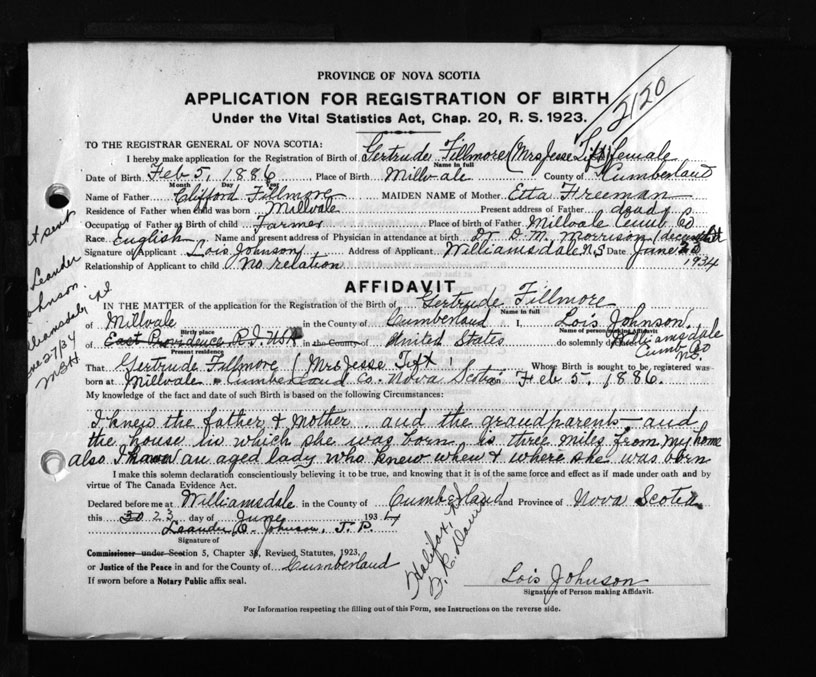 PROVINCE OF NOVA SCOTIA
APPLICATION FOR REGISTRATION OF BIRTH
2120
Under the Vital Statistics Act, Chap. 20, R. S. 1923.
TO THE REGISTRAR GENERAL OF NOVA SCOTIA:
I hereby make application for the Registration of Birth of Gertrude Fillmore (Mrs Jesse Tift) female
Name in full
Date of Birth Feb 5, 1886 Place of Birth Millvale County of Cumberland
Month Day Year
Name of Father Clifford Fillmore MAIDEN NAME of Mother Etta Freeman
Residence of Father when child was born Millvale Present address of Father dead
Occupation of Father at Birth of child Farmer Place of birth of Father Millvale Cumb Co
Race English Name and present address of Physician in attendance at birth Dr D. M. Morrison
Signature of Applicant Lois Johnson Address of Applicant Williamsdale N.S Date June 1934
Relationship of Applicant to child No relation
AFFIDAVIT
IN THE MATTER of the application for the Registration of the Birth of Gertrude Fillmore
Name in full
of Millvale in the County of Cumberland I, Lois Johnson
Birth place Name of person making Affidavit
of East Providence R.I. USA in the County of United States do solemnly declare Williamsdale
Cumb Co
N.S.
Present residence
That Gertrude Fillmore (Mrs Jesse Tift) Whose Birth is sought to be registered was
born at Millvale Cumberland Co. Nova Scotia on Feb 5, 1886.
My knowledge of the fact and date of such Birth is based on the following Circumstances:
I knew the father & Mother and the grandparents and
the house in which she was born, is three miles from my home
also I know an aged lady who knew when & where she was born
I make this solemn declaration conscientiously believing it to be true, and knowing that it is of the same force and effect as if made under oath and by
virtue of The Canada Evidence Act.
Declared before me at Williamsdale in the County of Cumberland and Province of Nova Scotia
this 23 day of June 1934
Leander O. Johnson, J. P.
Signature of
Commissioner under Section 5, Chapter 38, Revised Statutes, 1923,
or Justice of the Peace in and for the County of Cumberland
If sworn before a Notary Public affix seal.
Lois Johnson
Signature of Person making Affidavit.
For Information respecting the filling out of this Form, see Instructions on the reverse side.
sent
Leander
Johnson
Williamsdale
June 27/34
Halifax,